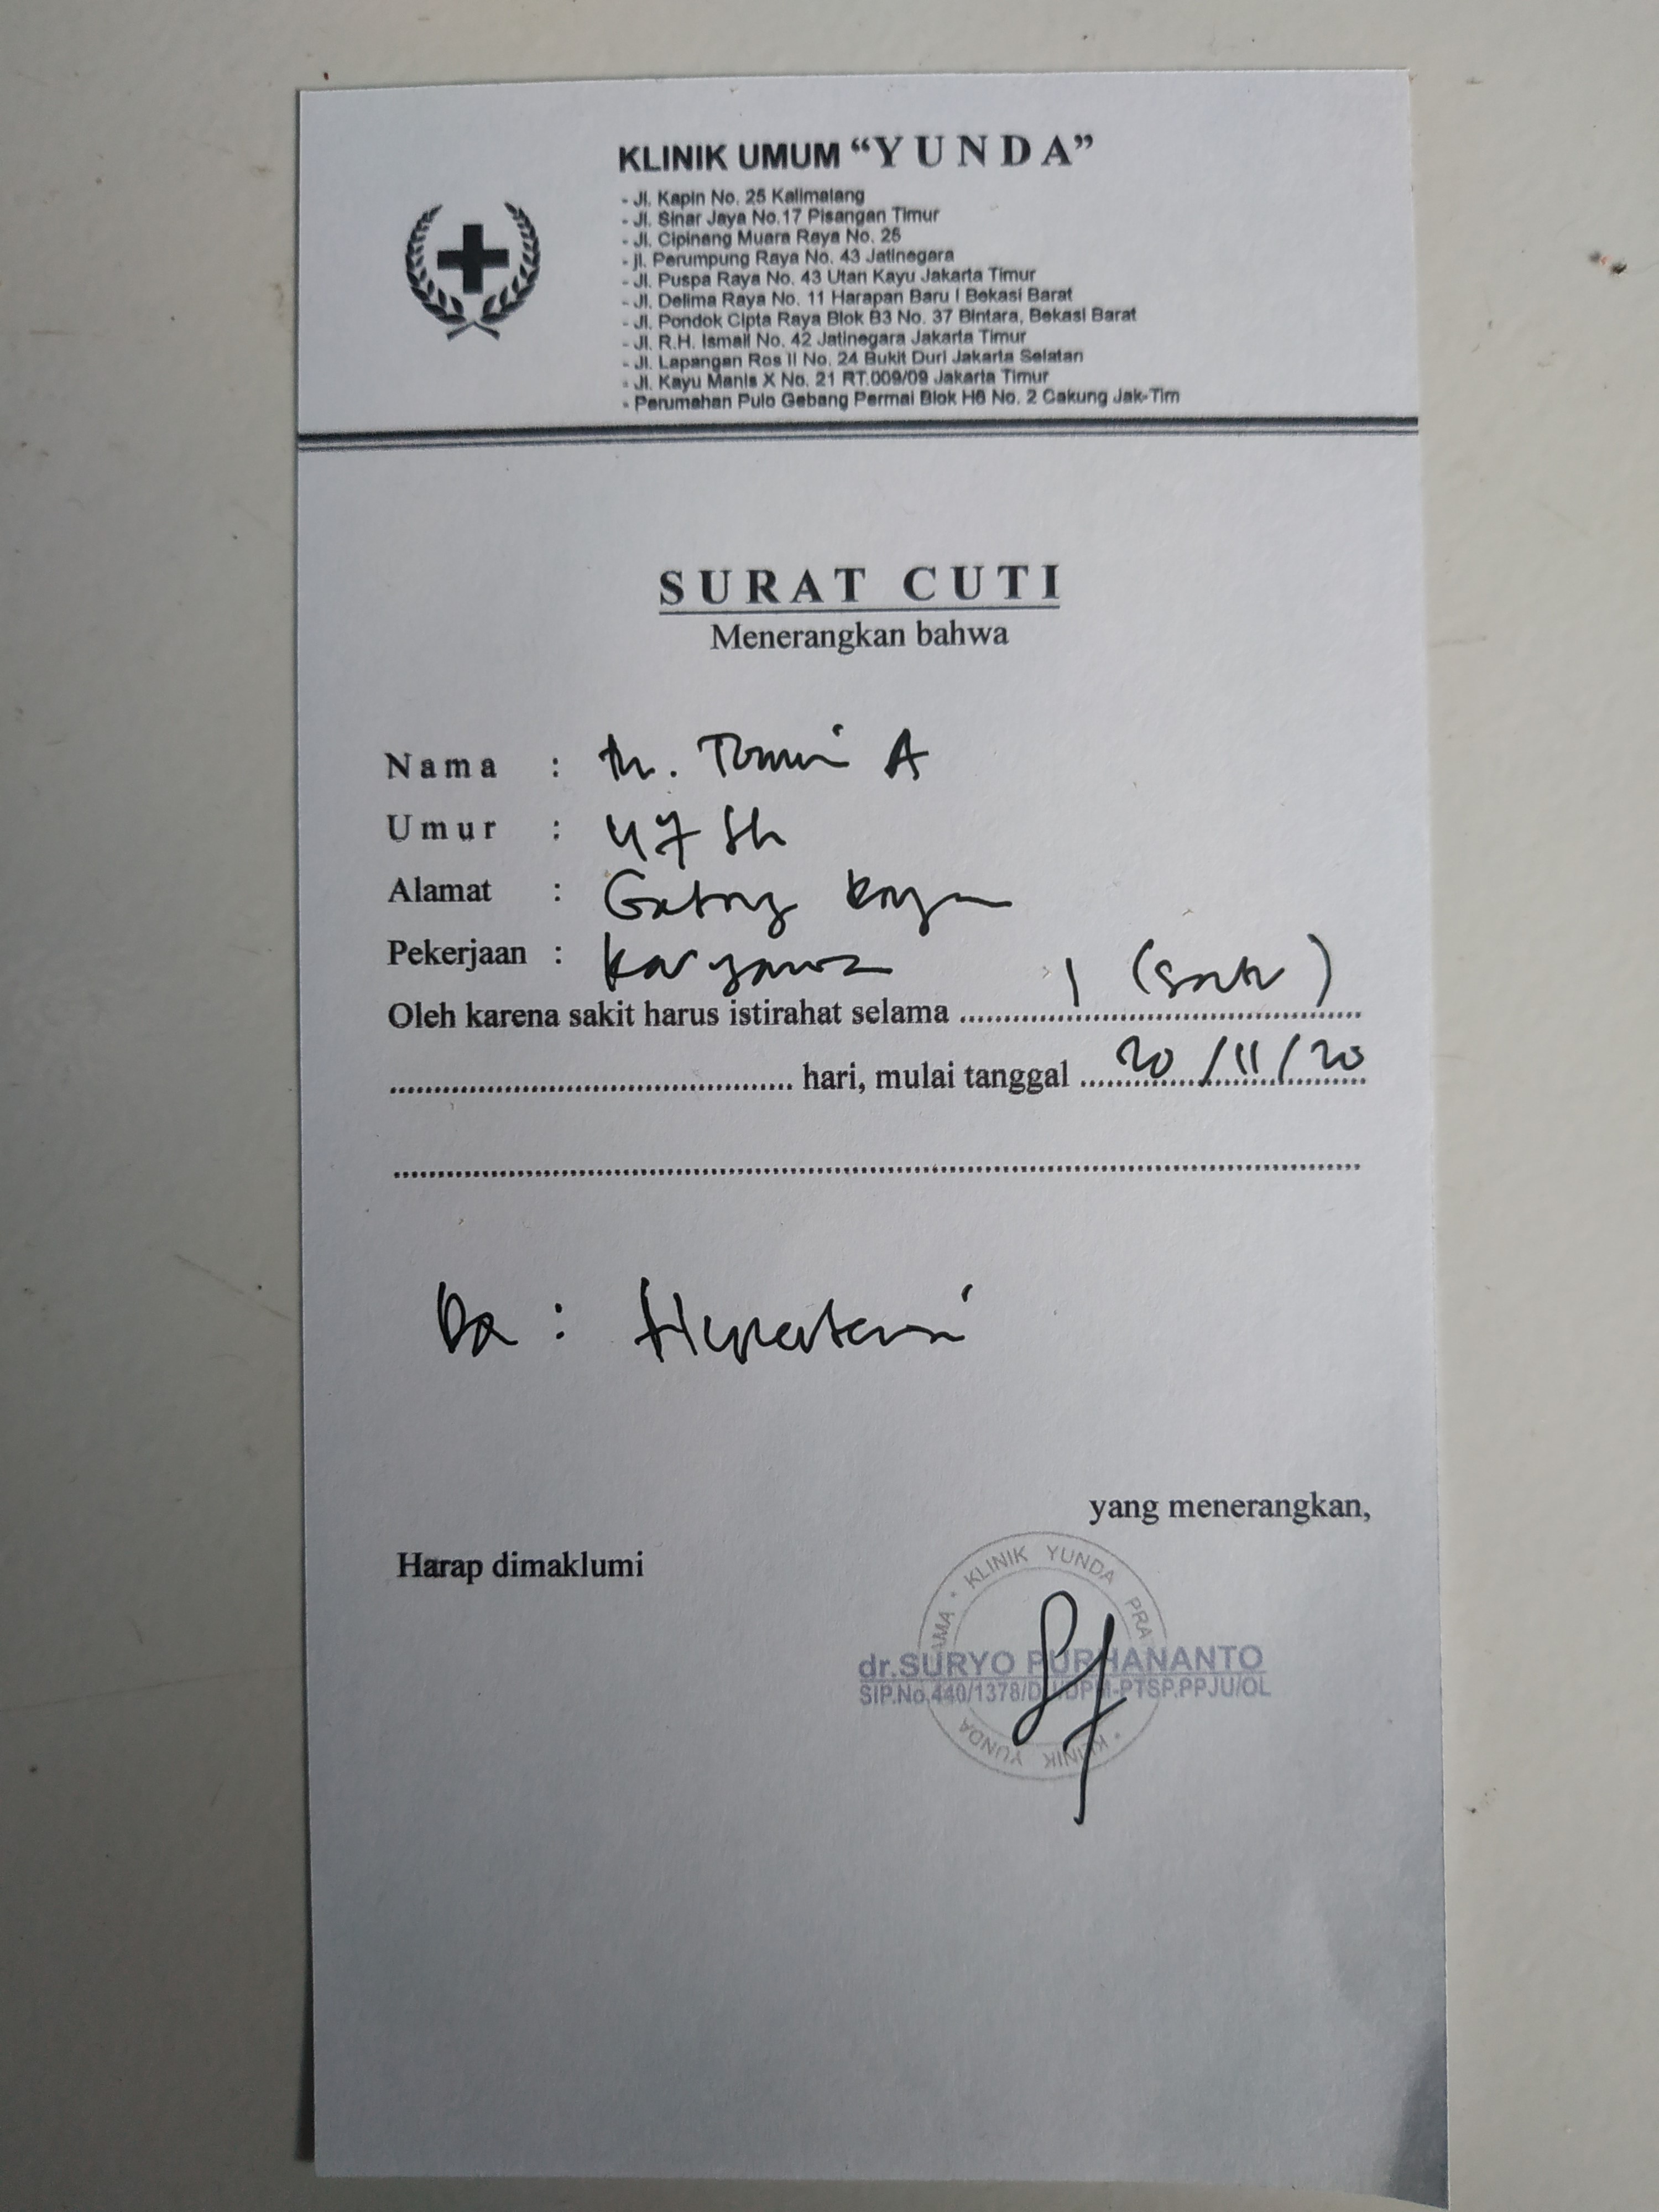 KLINIK UMUM “YUNDA”
- Jl. Kapin No. 25 Kalimalang
- Jl. Sinar Jaya No.17 Pisangan Timur
- Jl. Cipinang Muara Raya No. 25
- jl. Perumpung Raya No. 43 Jatinegara
- Jl. Puspa Raya No. 43 Utan Kayu Jakarta Timur
- Jl. Delima Raya No. 11 Harapan Baru I Bekasi Barat
- Jl. Pondok Cipta Raya Blok B3 No. 37 Bintara, Bekasi Barat
- Jl. R.H. Ismail No. 42 Jatinegara Jakarta Timur
- Jl. Lapangan Ros II No. 24 Bukit Duri Jakarta Selatan
- Jl. Kayu Manis X No. 21 RT.009/09 Jakarta Timur
- Perumahan Pulo Gebang Permai Blok H6 No. 2 Cakung Jak-Tim
SURAT CUTI
Menerangkan bahwa
Nama : Tn. Tomi A
Umur : 47 th
Alamat :
Pekerjaan : Karyawan
Oleh karena sakit harus istirahat selama 1 (satu)
hari, mulai tanggal 20/11/20
Dx : Hipertensi
yang menerangkan,
Harap dimaklumi
KLINIK YUNDA PRATAMA * KLINIK YUNDA
dr.SURYO PURHANANTO